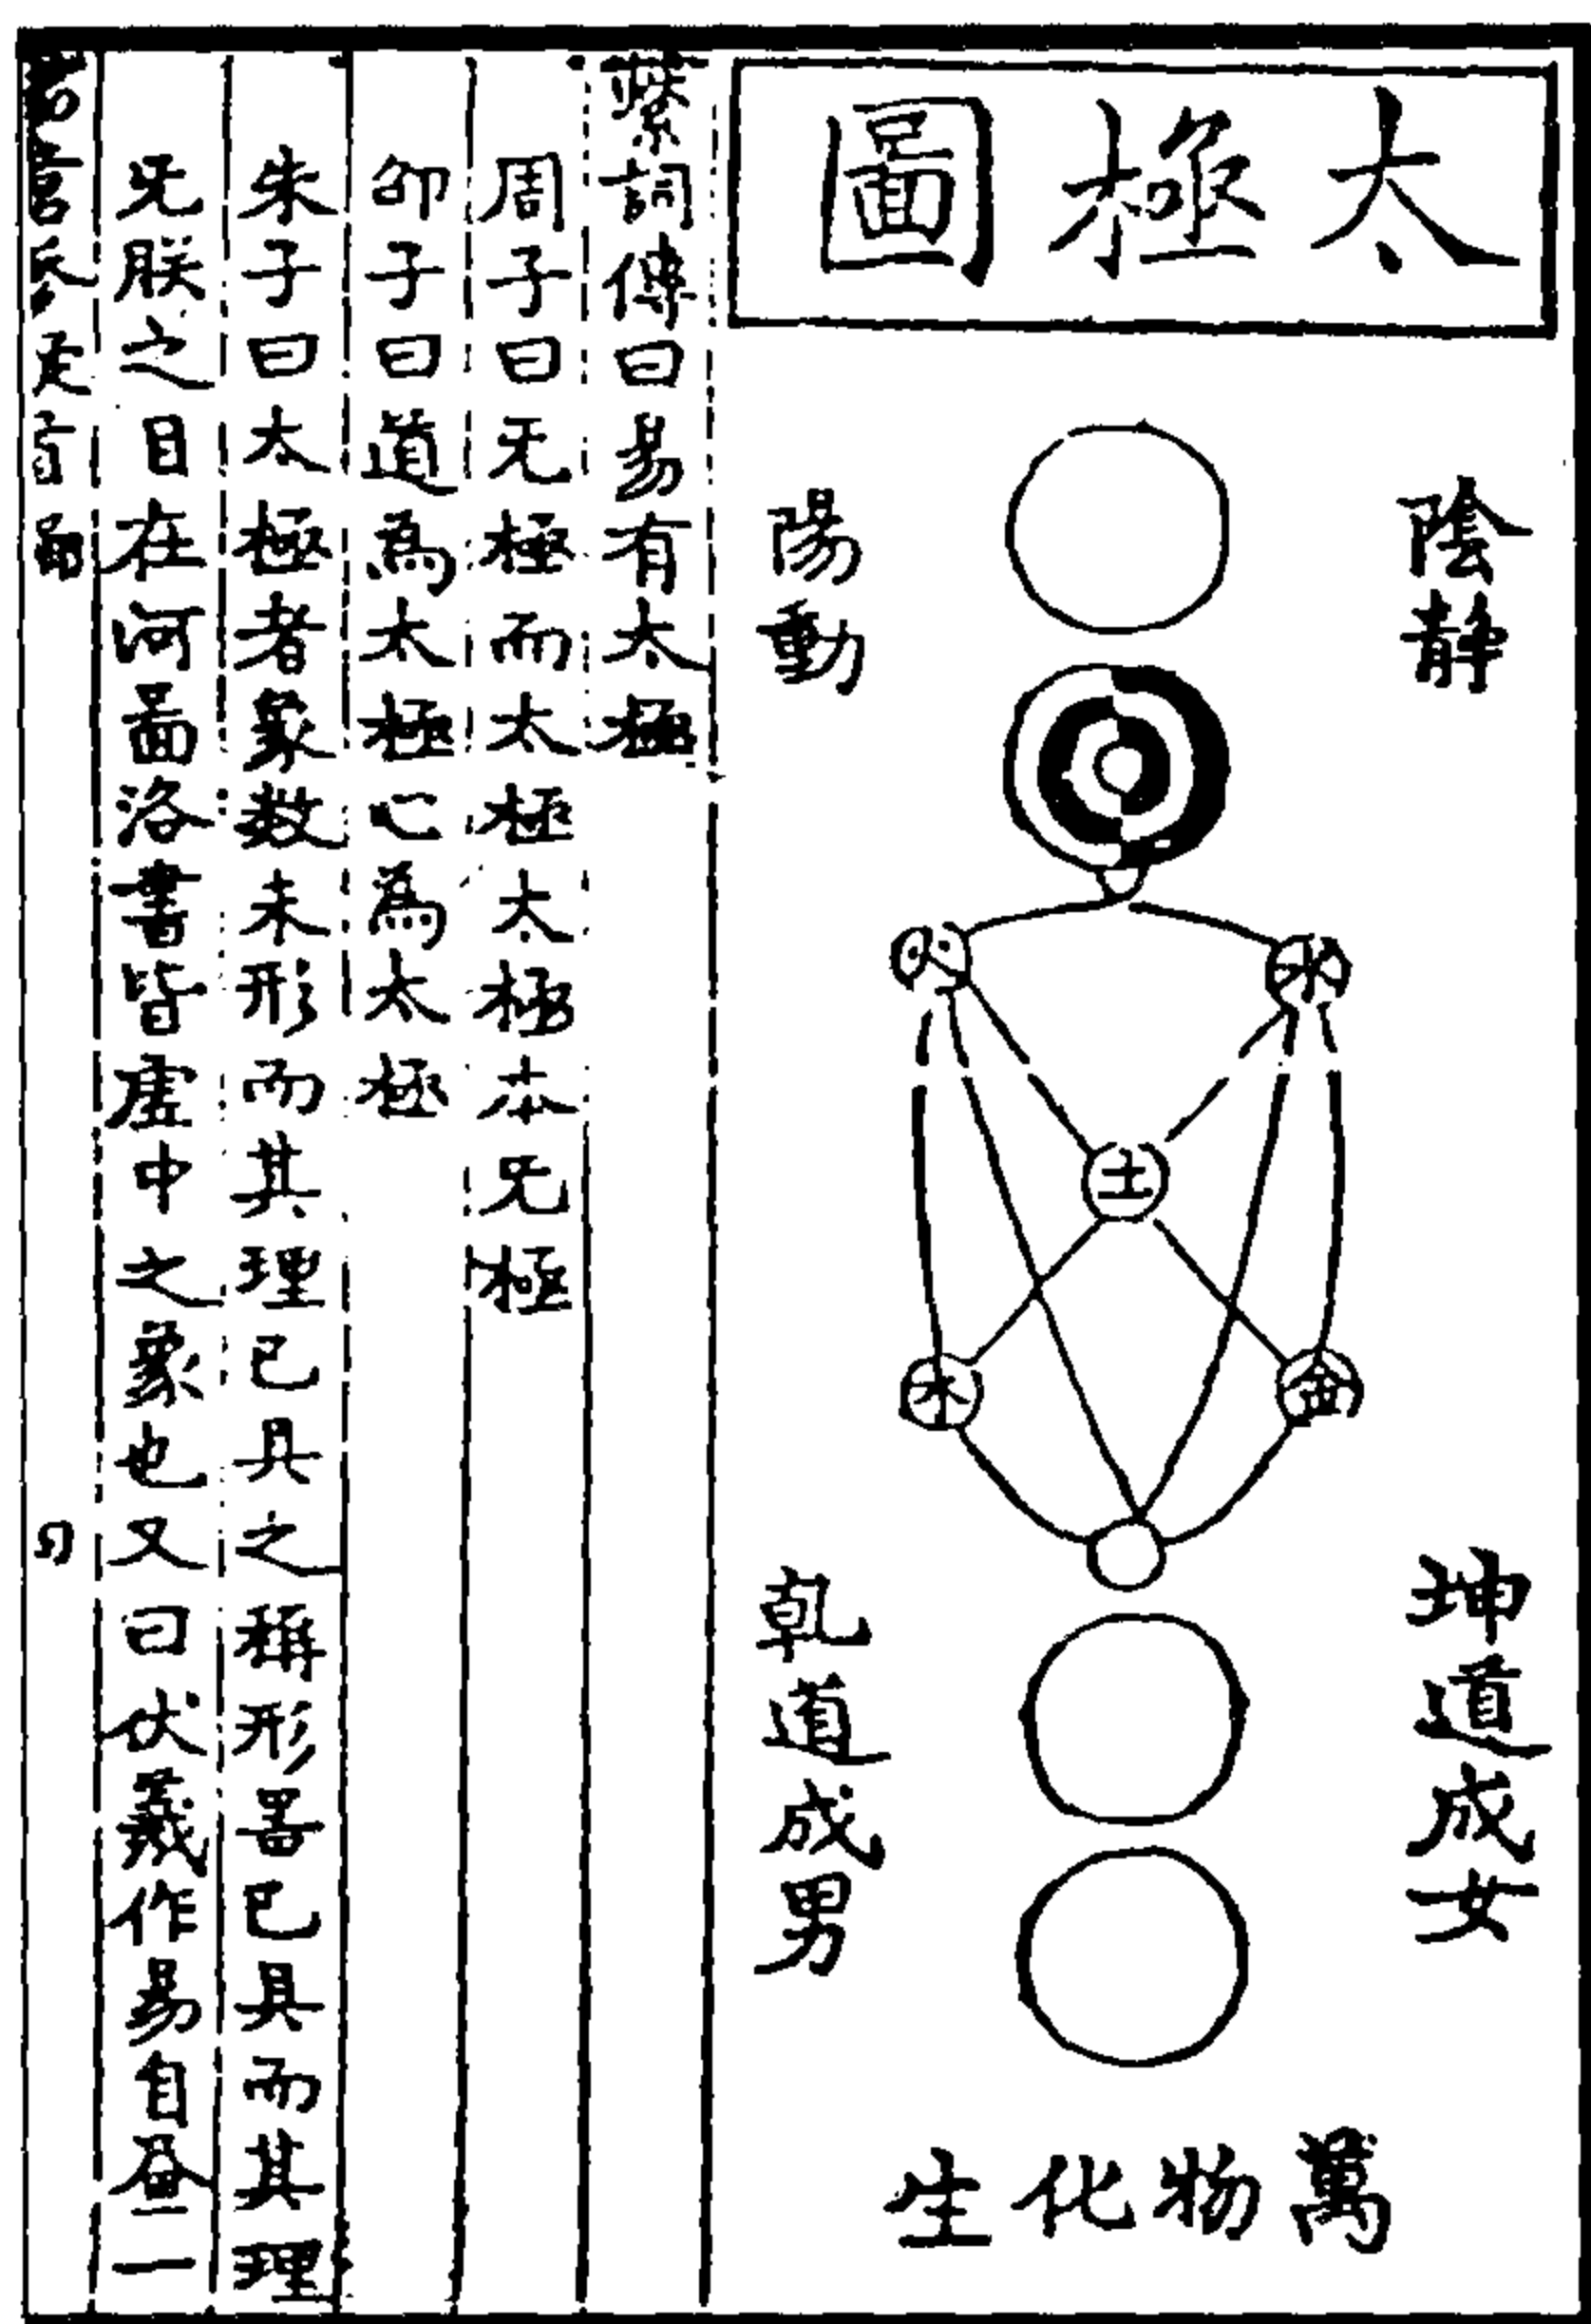 太極圖
陰靜
陽動
火
水
土
木
金
坤道成女
乾道成男
萬物化生
繫詞傳曰易有太極
周子曰无極而太極太極本无極
邵子曰道爲太極心爲太極
朱子曰太極者象数未形而其理已具之稱形器已具而其理
无朕之目在河啚洛書皆虛中之象也又曰伏羲作易自𤰱一